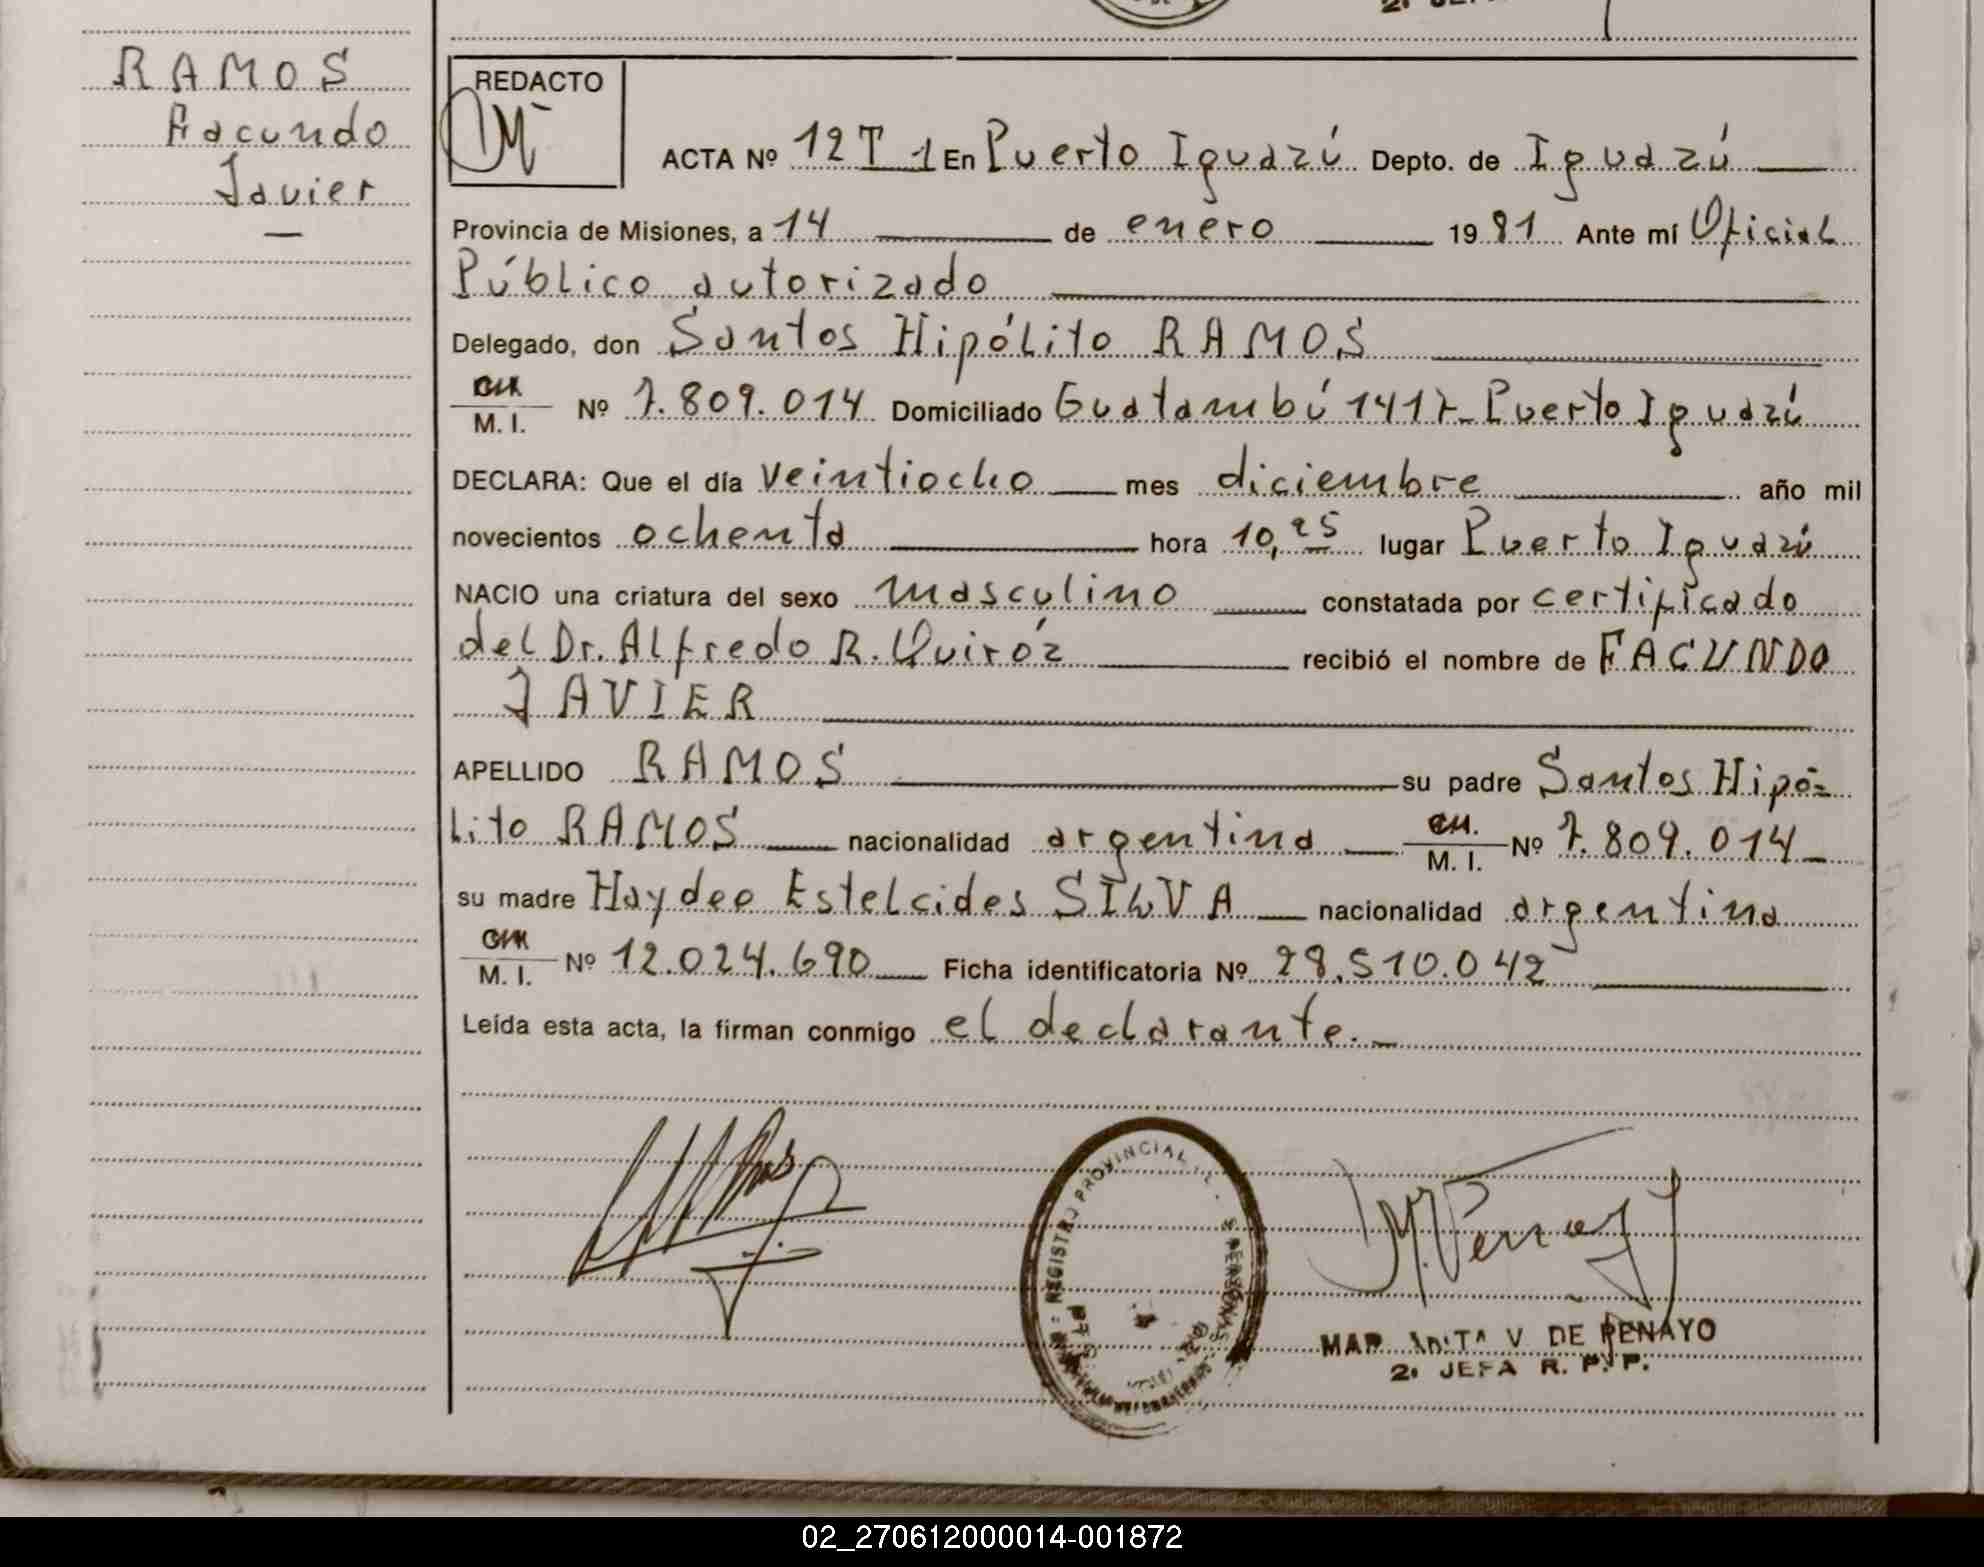 RAMOS
Facundo
Javier
REDACTO
ACTA Nº 12 T 1 En Puerto Iguazú Depto. de Iguazú
Provincia de Misiones, a 14 de enero 1981 Ante mí Oficial
Público autorizado
Delegado, don Santos Hipólito RAMOS
M. I. Nº 7.809.014 Domiciliado Guatambú 1417- Puerto Iguazú
DECLARA: Que el día veintiocho mes diciembre año mil
novecientos ochenta hora 10,25 lugar Puerto Iguazú
NACIO una criatura del sexo masculino constatada por certificado
del Dr. Alfredo R. Quiróz recibió el nombre de FACUNDO
JAVIER
APELLIDO RAMOS su padre Santos Hipó=
lito RAMOS nacionalidad argentina M. I. Nº 7.809.014
su madre Haydee Estelcides SILVA nacionalidad argentina
M. I. Nº 12.024.690 Ficha identificatoria Nº 28.510.042
Leída esta acta, la firman conmigo el declarante.
REGISTRO PROVINCIAL
PERSONAS
V. DE PENAYO
2ª JEFA R. P. P.
02_270612000014-001872